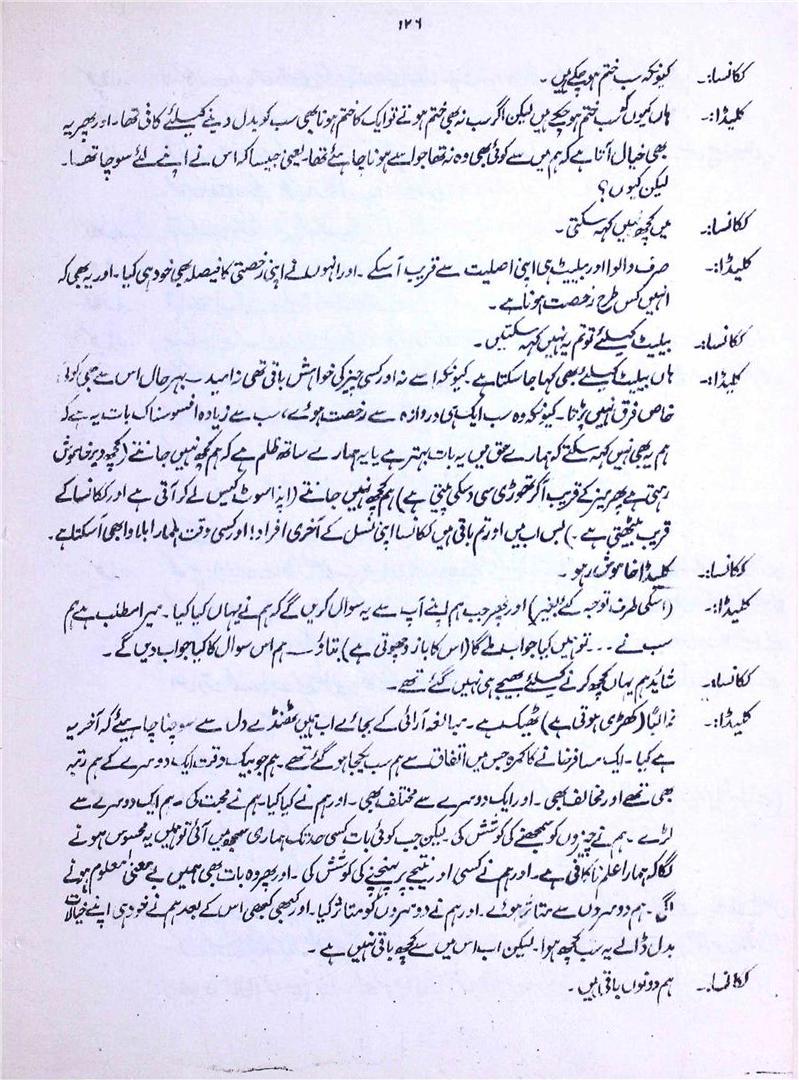 ۱۲۶
ککانسا:۔ کیونکہ سب ختم ہو چکے ہیں ۔
کلیڈا:۔ ہاں کیوں کہ سب ختم ہو چکے ہیں لیکن اگر سب نہ بھی ختم ہوتے تو ایک کا ختم ہونا بھی سب کو بدل دینے کیلئے کافی تھا ۔ اور پھر یہ
بھی خیال آتا ہے کہ ہم میں سے کوئی بھی وہ نہ تھا جو اسے ہونا چاہئے تھا ۔ یعنی جیسا کہ اس نے اپنے لئے سوچا تھا ۔
لیکن کیوں ؟
ککانسا:۔ میں کچھ نہیں کہہ سکتی ۔
کلیڈا:۔ صرف والوا اور بیلیٹ ہی اپنی اصلیت سے قریب آ سکے ۔ اور انہوں نے اپنی رخصتی کا فیصلہ بھی خود ہی کیا ۔ اور یہ بھی کہ
انہیں کس طرح رخصت ہونا ہے ۔
ککانسا:۔ بیلیٹ کیلئے تو تم یہ نہیں کہہ سکتیں ۔
کلیڈا:۔ ہاں بیلیٹ کیلئے بھی کہا جا سکتا ہے ۔ کیونکہ اسے نہ اور کسی چیز کی خواہش باقی تھی نہ امید ۔ بہر حال اس سے بھی کوئی
خاص فرق نہیں پڑتا ۔ کیونکہ وہ سب ایک ہی دروازہ سے رخصت ہوئے، سب سے زیادہ افسوسناک بات یہ ہے کہ
ہم یہ بھی نہیں کہہ سکتے کہ ہمارے حق میں یہ بات بہتر ہے یا یہ ہمارے ساتھ ظلم ہے کہ ہم کچھ نہیں جانتے (کچھ دیر خاموش
رہتی ہے پھر میز کے قریب آ کر تھوڑی سی وسکی پیتی ہے) ہم کچھ نہیں جانتے (اپنا سوٹ کیس لے کر آتی ہے اور ککانسا کے
قریب بیٹھتی ہے ۔) بس اب میں اور تم باقی ہیں ککانسا اپنی نسل کے آخری افراد! اور کسی وقت ہمارا بلاوا بھی آ سکتا ہے ۔
ککانسا:۔ کلیڈا خاموش رہو ۔
کلیڈا:۔ (اسکی طرف توجہ کئے بغیر) اور پھر جب ہم اپنے آپ سے یہ سوال کریں گے کہ ہم نے یہاں کیا کیا ۔ میرا مطلب ہے ہم
سب نے ۔۔۔ تو ہمیں کیا جواب ملے گا (اس کا بازو چھوتی ہے) بتاؤ ۔ ہم اس سوال کا کیا جواب دیں گے ۔
ککانسا:۔ شاید ہم یہاں کچھ کرنے کیلئے بھیجے ہی نہیں گئے تھے ۔
کلیڈا:۔ غالباً (کھڑی ہوتی ہے) ٹھیک ہے ۔ مبالغہ آرائی کے بجائے اب ہمیں ٹھنڈے دل سے سوچنا چاہیئے کہ آخر یہ
ہے کیا ۔ ایک مسافر خانے کا کمرہ جس میں اتفاق سے ہم سب یکجا ہو گئے تھے ۔ ہم جو بیک وقت ایک دوسرے کے ہم رتبہ
بھی تھے اور مخالف بھی ۔ اور ایک دوسرے سے مختلف بھی ۔ اور ہم نے کیا کیا ۔ ہم نے محبت کی ۔ ہم ایک دوسرے سے
لڑے ۔ ہم نے چیزوں کو سمجھنے کی کوشش کی ۔ لیکن جب کوئی بات کسی حد تک ہماری سمجھ میں آئی تو ہمیں یہ محسوس ہونے
لگا کہ ہمارا علم ناکافی ہے ۔ اور ہم نے کسی اور نتیجے پر پہنچنے کی کوشش کی ۔ اور پھر وہ بات بھی ہمیں بے معنی معلوم ہونے
لگی ۔ ہم دوسروں سے متاثر ہوئے ۔ اور ہم نے دوسروں کو متاثر کیا ۔ اور کبھی کبھی اس کے بعد ہم نے خود ہی اپنے خیالات
بدل ڈالے یہ سب کچھ ہوا ۔ لیکن اب اس میں سے کچھ باقی نہیں ہے ۔
ککانسا:۔ ہم دونوں باقی ہیں ۔